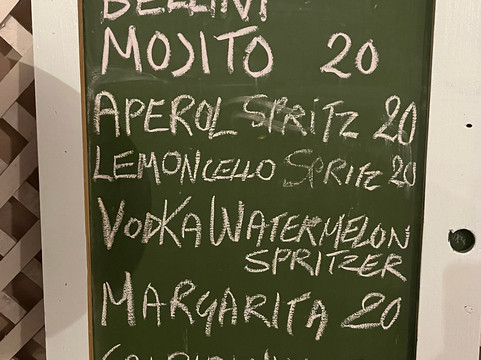 BELLINI
MOJITO 20
APEROL SPRITZ 20
LEMONCELLO SPRITZ 20
VODKA WATERMELON
SPRITZER
MARGARITA 20